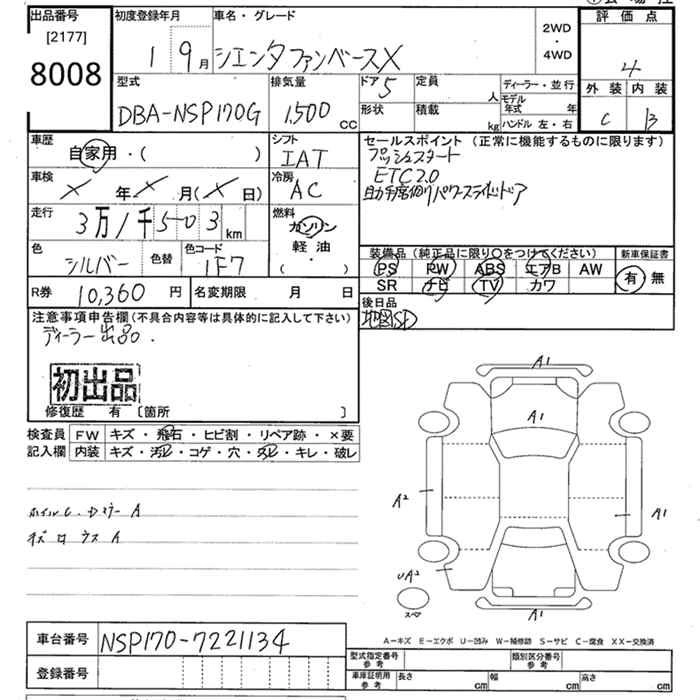 出品番号
[2177]
8008
初度登録年月
1 9月
車名・グレード
シエンタファンベースX
2WD
・
4WD
評価点
4
外装 内装
C B
型式
DBA-NSP170G
排気量
1,500 cc
ドア 5
形状
定員 人
積載 kg
ディーラー・並行
モデル年式 年
ハンドル 左・右
車歴
自家用・( )
シフト
IAT
車検
×年×月(×日)
冷房
AC
走行
3万1千503km
燃料
ガソリン
軽油・
( )
色
シルバー
色替
色コード
1F7
R券 10,360円
名変期限 月 日
セールスポイント (正常に機能するものに限ります)
プッシュスタート
ETC2.0
助手席側パワースライドドア
装備品 (純正品に限り〇をつけてください)
PS PW ABS エアB AW
SR ナビ TV カワ
新車保証書
有 無
後日品
地図SD
注意事項申告欄(不具合内容等は具体的に記入して下さい)
ディーラー出品.
初出品
修復歴 有 [箇所 ]
検査員
記入欄
FW キズ・飛石・ヒビ割・リペア跡・×要
内装 キズ・汚レ・コゲ・穴・スレ・キレ・破レ
ホイルC.
A
キズ
A
A1
A1
A2
A1
UA2
A1
スペア
A-キズ E-エクボ U-凹み W-補修跡 S-サビ C-腐食 XX-交換済
車台番号 NSP170-7221134
登録番号
型式指定番号
参考
類別区分番号
参考
車庫証明用
参考
長さ cm 幅 cm 高さ cm